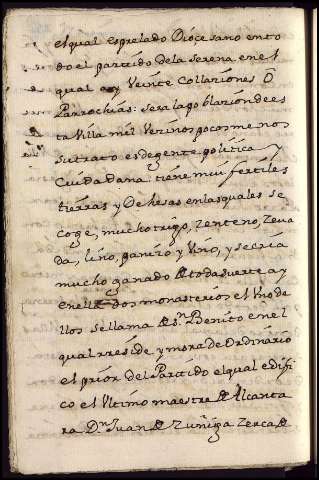 el qual es prelado Dioçesano en to
do el partido de la serena en el
qual ay Veinte Collaziones ô
Parrochias: sera la poblazion de es
ta Villa mil Vezinos pocos menos
su trato es de gente politica y
Ciudadana: tiene mui fertiles
tierras y Dehesas en las quales se
coge, mucho trigo, zenteno, zeva
da, lino, panizo y Vino, y se cria
mucho ganado de toda suerte ay
en ella dos monasterios el Vno de
llos se llama de sn. Benito en el
qual rreside y mora de Ordinario
el prior del Partido el qual edifi
co el Vltimo maestre de Alcanta
ra Dn. Juan de Zuñiga zerca de